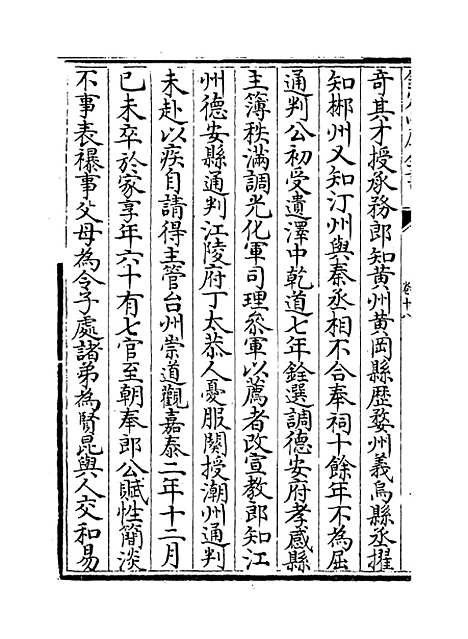 奇其才授承務郎知黄州黄岡縣歴婺州義烏縣丞擢
知郴州又知汀州與秦丞相不合奉祠十餘年不為屈
通判公初受遺澤中乾道七年銓選調德安府孝感縣
主簿秩滿調光化軍司理叅軍以薦者改宣教郎知江
州德安縣通判江陵府丁太恭人憂服闋授潮州通判
未赴以疾自請得主管台州崇道觀嘉泰二年十二月
已未卒於家享年六十有七官至朝奉郎公賦性簡淡
不事表襮事父母為令子處諸弟為賢昆與人交和易
卷十八